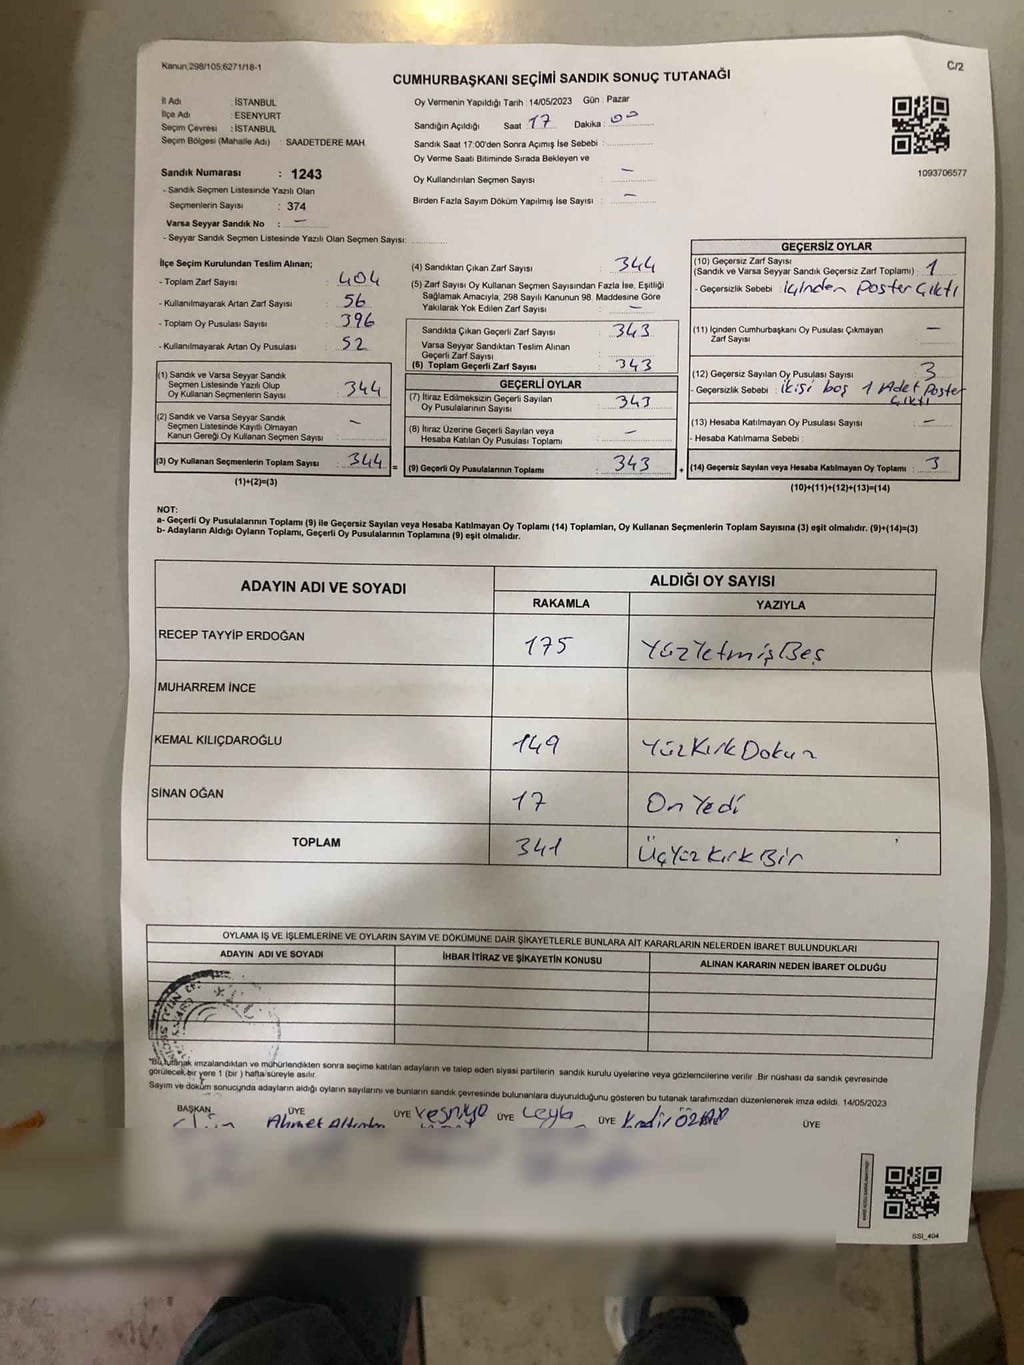 Kanun 298/105;6271/18-1
C/2
CUMHURBAŞKANI SEÇİMİ SANDIK SONUÇ TUTANAĞI
İl Adı : İSTANBUL
İlçe Adı : ESENYURT
Seçim Çevresi : İSTANBUL
Seçim Bölgesi (Mahalle Adı) : SAADETDERE MAH.
Sandık Numarası : 1243
- Sandık Seçmen Listesinde Yazılı Olan
Seçmenlerin Sayısı : 374
Varsa Seyyar Sandık No : –
- Seyyar Sandık Seçmen Listesinde Yazılı Olan Seçmen Sayısı:
Oy Vermenin Yapıldığı Tarih : 14/05/2023 Gün : Pazar
Sandığın Açıldığı Saat 17 Dakika : 00
Sandık Saat 17:00'den Sonra Açımış İse Sebebi :
Oy Verme Saati Bitiminde Sırada Bekleyen ve
Oy Kullandırılan Seçmen Sayısı : –
Birden Fazla Sayım Döküm Yapılmış İse Sayısı : –
1093706577
İlçe Seçim Kurulundan Teslim Alınan;
- Toplam Zarf Sayısı : 404
- Kullanılmayarak Artan Zarf Sayısı : 56
- Toplam Oy Pusulası Sayısı : 396
- Kullanılmayarak Artan Oy Pusulası : 52
(1) Sandık ve Varsa Seyyar Sandık
Seçmen Listesinde Yazılı Olup
Oy Kullanan Seçmenlerin Sayısı : 344
(2) Sandık ve Varsa Seyyar Sandık
Seçmen Listesinde Kayıtlı Olmayan
Kanun Gereği Oy Kullanan Seçmen Sayısı : –
(3) Oy Kullanan Seçmenlerin Toplam Sayısı : 344 =
(1)+(2)=(3)
(4) Sandıktan Çıkan Zarf Sayısı : 344
(5) Zarf Sayısı Oy Kullanan Seçmen Sayısından Fazla İse, Eşitliği
Sağlamak Amacıyla, 298 Sayılı Kanunun 98. Maddesine Göre
Yakılarak Yok Edilen Zarf Sayısı : –
Sandıkta Çıkan Geçerli Zarf Sayısı : 343
Varsa Seyyar Sandıktan Teslim Alınan
Geçerli Zarf Sayısı :
(6) Toplam Geçerli Zarf Sayısı : 343
GEÇERLİ OYLAR
(7) İtiraz Edilmeksizin Geçerli Sayılan
Oy Pusulalarının Sayısı : 343
(8) İtiraz Üzerine Geçerli Sayılan veya
Hesaba Katılan Oy Pusulası Toplamı : –
(9) Geçerli Oy Pusulalarının Toplamı : 343 +
GEÇERSİZ OYLAR
(10) Geçersiz Zarf Sayısı
(Sandık ve Varsa Seyyar Sandık Geçersiz Zarf Toplamı) : 1
- Geçersizlik Sebebi : içinden poster çıktı
(11) İçinden Cumhurbaşkanı Oy Pusulası Çıkmayan
Zarf Sayısı : –
(12) Geçersiz Sayılan Oy Pusulası Sayısı : 3
- Geçersizlik Sebebi : ikisi boş 1 Adet Poster
çıktı
(13) Hesaba Katılmayan Oy Pusulası Sayısı : –
- Hesaba Katılmama Sebebi :
(14) Geçersiz Sayılan veya Hesaba Katılmayan Oy Toplamı : 3
(10)+(11)+(12)+(13)=(14)
NOT:
a- Geçerli Oy Pusulalarının Toplamı (9) ile Geçersiz Sayılan veya Hesaba Katılmayan Oy Toplamı (14) Toplamları, Oy Kullanan Seçmenlerin Toplam Sayısına (3) eşit olmalıdır. (9)+(14)=(3)
b- Adayların Aldığı Oyların Toplamı, Geçerli Oy Pusulalarının Toplamına (9) eşit olmalıdır.
ADAYIN ADI VE SOYADI
ALDIĞI OY SAYISI
RAKAMLA YAZIYLA
RECEP TAYYİP ERDOĞAN 175 YüzYetmişBeş
MUHARREM İNCE
KEMAL KILIÇDAROĞLU 149 YüzKırkDokuz
SİNAN OĞAN 17 On Yedi
TOPLAM 341 ÜçYüz Kırk Bir
OYLAMA İŞ VE İŞLEMLERİNE VE OYLARIN SAYIM VE DÖKÜMÜNE DAİR ŞİKAYETLERLE BUNLARA AİT KARARLARIN NELERDEN İBARET BULUNDUKLARI
ADAYIN ADI VE SOYADI İHBAR İTİRAZ VE ŞİKAYETİN KONUSU ALINAN KARARIN NEDEN İBARET OLDUĞU
*Bu tutanak imzalandıktan ve mühürlendikten sonra seçime katılan adayların ve talep eden siyasi partilerin sandık kurulu üyelerine veya gözlemcilerine verilir. Bir nüshası da sandık çevresinde
görülecek bir yere 1 (bir) hafta süreyle asılır.
Sayım ve döküm sonucunda adayların aldığı oyların sayılarını ve bunların sandık çevresinde bulunanlara duyurulduğunu gösteren bu tutanak tarafımızdan düzenlenerek imza edildi. 14/05/2023
BAŞKAN ÜYE ÜYE ÜYE ÜYE ÜYE
Ahmet Leyla Kadir
SSI_404